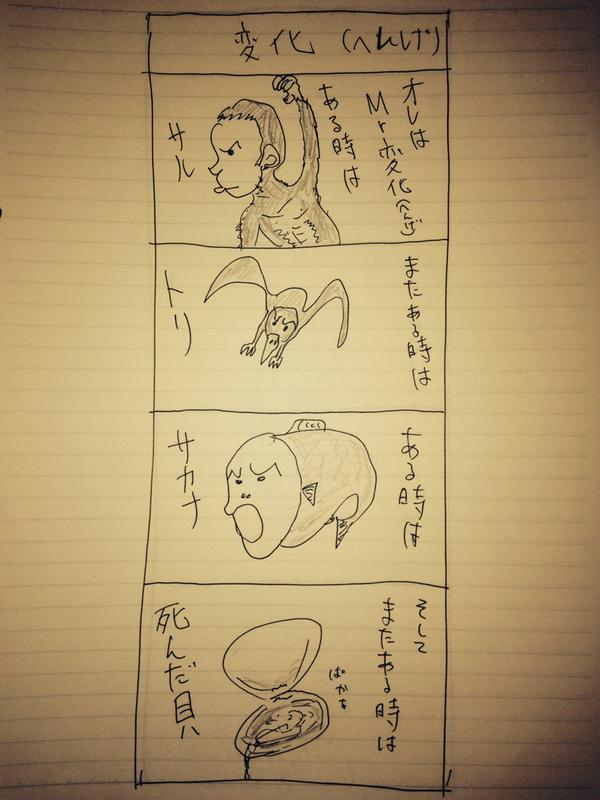 変化 (へんげ)
オレは
Mr変化(へんげ)
ある時は
サル
またある時は
トリ
ある時は
サカナ
そして
またある時は
ぱかぁ
死んだ貝